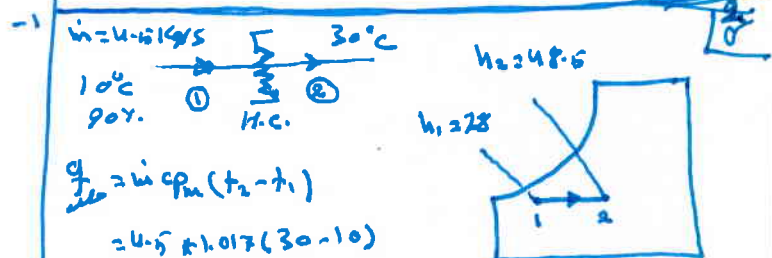 -1
ṁ=4.5 Kg/s
30°C
10°C
90%.
①
②
H.C.
h₂=48.5
h₁=28
q = ṁ cpm (t₂-t₁)
=4.5 * 1.017 (30-10)
1
2